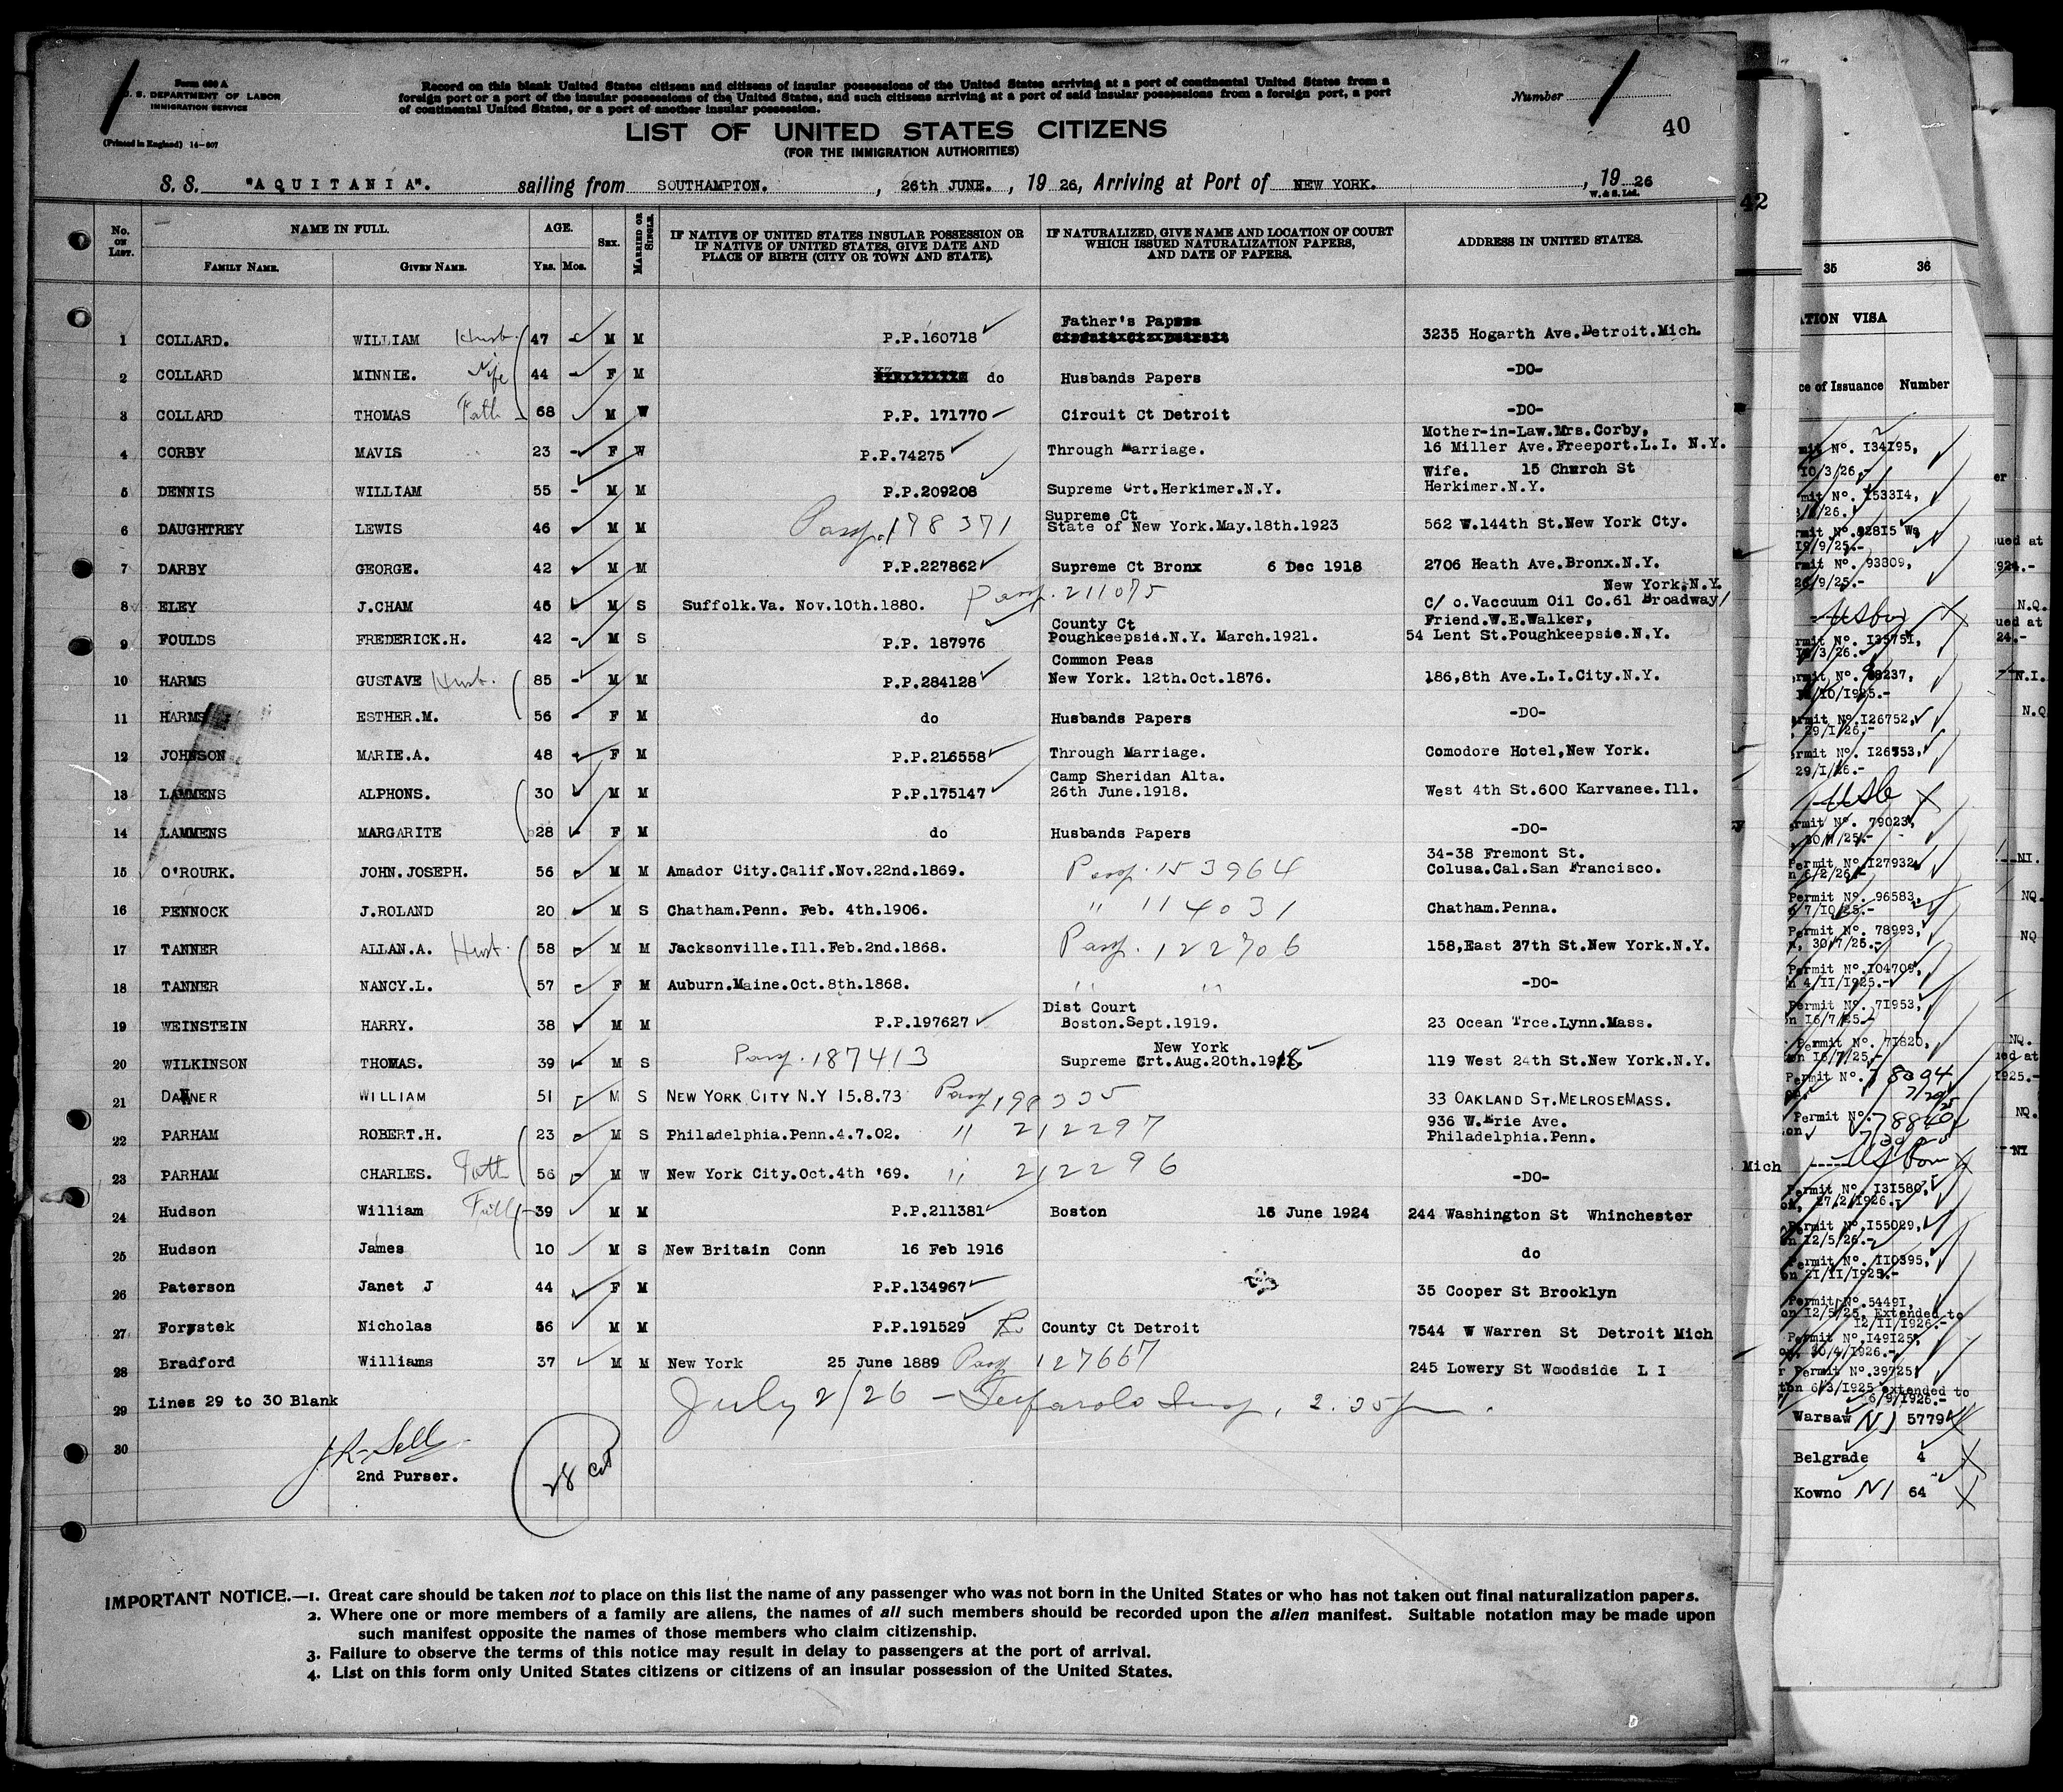 Form 630 A
U. S. DEPARTMENT OF LABOR
IMMIGRATION SERVICE
(Printed in England) 14-607
Record on this blank United States citizens and citizens of insular possessions of the United States arriving at a port of continental United States from a
foreign port or a port of the insular possessions of the United States, and such citizens arriving at a port of said insular possessions from a foreign port, a port
of continental United States, or a port of another insular possession.
Number
40
LIST OF UNITED STATES CITIZENS
(FOR THE IMMIGRATION AUTHORITIES)
S. S. "AQUITANIA". sailing from SOUTHAMPTON. , 26th JUNE. , 19 26, Arriving at Port of NEW YORK. , 19 26
W. & S. Ltd.
No. ON LIST. NAME IN FULL. FAMILY NAME. GIVEN NAME. AGE. YRS. MOS. SEX. MARRIED OR SINGLE. IF NATIVE OF UNITED STATES INSULAR POSSESSION OR IF NATIVE OF UNITED STATES, GIVE DATE AND PLACE OF BIRTH (CITY OR TOWN AND STATE). IF NATURALIZED, GIVE NAME AND LOCATION OF COURT WHICH ISSUED NATURALIZATION PAPERS, AND DATE OF PAPERS. ADDRESS IN UNITED STATES.
Father's Papers
1 COLLARD. WILLIAM Husb. 47 M M P.P.160718 3235 Hogarth Ave.Detroit.Mich.
2 COLLARD MINNIE. Wife 44 F M do Husbands Papers -DO-
3 COLLARD THOMAS Fath 68 M W P.P. 171770 Circuit Ct Detroit -DO-
Mother-in-Law.Mrs.Corby,
4 CORBY MAVIS 23 F W P.P.74275 Through Marriage. 16 Miller Ave.Freeport.L.I. N.Y.
Wife. 15 Church St
5 DENNIS WILLIAM 55 M M P.P.209208 Supreme Crt.Herkimer.N.Y. Herkimer.N.Y.
Supreme Ct
6 DAUGHTREY LEWIS 46 M M Pasp. 178371 State of New York.May.18th.1923 562 W.144th St.New York Cty.
7 DARBY GEORGE. 42 M M P.P.227862 Supreme Ct Bronx 6 Dec 1918 2706 Heath Ave.Bronx.N.Y.
New York,N.Y.
8 ELEY J.CHAM 45 M S Suffolk.Va. Nov.10th.1880. Pasp. 211075 C/ o.Vaccuum Oil Co.61 Broadway/
County Ct Friend.W.E.Walker,
9 FOULDS FREDERICK.H. 42 M S P.P. 187976 Poughkeepsie.N.Y. March.1921. 54 Lent St.Poughkeepsie.N.Y.
Common Peas
10 HARMS GUSTAVE Husb. 85 M M P.P.284128 New York. 12th.Oct.1876. 186,8th Ave.L.I.City.N.Y.
11 HARMS ESTHER.M. 56 F M do Husbands Papers -DO-
12 JOHNSON MARIE.A. 48 F M P.P.216558 Through Marriage. Comodore Hotel,New York.
Camp Sheridan Alta.
13 LAMMENS ALPHONS. 30 M M P.P.175147 26th June.1918. West 4th St.600 Karvanee.Ill.
14 LAMMENS MARGARITE 28 F M do Husbands Papers -DO-
34-38 Fremont St.
15 O'ROURK. JOHN.JOSEPH. 56 M M Amador City.Calif.Nov.22nd.1869. Pasp. 153964 Colusa.Cal.San Francisco.
16 PENNOCK J.ROLAND 20 M S Chatham.Penn. Feb. 4th.1906. " 114031 Chatham.Penna.
17 TANNER ALLAN.A. Husb. 58 M M Jacksonville.Ill.Feb.2nd.1868. Pasp. 122706 158,East 37th St.New York.N.Y.
18 TANNER NANCY.L. 57 F M Auburn.Maine.Oct.8th.1868. " " -DO-
Dist Court
19 WEINSTEIN HARRY. 38 M M P.P.197627 Boston.Sept.1919. 23 Ocean Trce.Lynn.Mass.
New York
20 WILKINSON THOMAS. 39 M S Pasp. 187413 Supreme Crt.Aug.20th.1918 119 West 24th St.New York.N.Y.
21 DANNER WILLIAM 51 M S NEW YORK CITY N.Y 15.8.73 Pasp 33 OAKLAND ST.MELROSE MASS.
936 W.Erie Ave.
22 PARHAM ROBERT.H. 23 M S Philadelphia.Penn.4.7.02. " 212297 Philadelphia.Penn.
23 PARHAM CHARLES. Fath 56 M W New York City.Oct.4th '69. " 212296 -DO-
24 Hudson William 39 M M P.P.211381 Boston 16 June 1924 244 Washington St Whinchester
25 Hudson James 10 M S New Britain Conn 16 Feb 1916 do
26 Paterson Janet J 44 F M P.P.134967 35 Cooper St Brooklyn
27 Forystek Nicholas 56 M M P.P.191529 County Ct Detroit 7544 W Warren St Detroit Mich
28 Bradford Williams 37 M M New York 25 June 1889 Pasp 127667 245 Lowery St Woodside L I
29 Lines 29 to 30 Blank July 2/26 -
30
2nd Purser.
28 cit
IMPORTANT NOTICE.—1. Great care should be taken not to place on this list the name of any passenger who was not born in the United States or who has not taken out final naturalization papers.
2. Where one or more members of a family are aliens, the names of all such members should be recorded upon the alien manifest. Suitable notation may be made upon
such manifest opposite the names of those members who claim citizenship.
3. Failure to observe the terms of this notice may result in delay to passengers at the port of arrival.
4. List on this form only United States citizens or citizens of an insular possession of the United States.
42
35 36
ATION VISA
ce of Issuance Number
mit No. 134195,
10/3/26,-
mit No. 153314,
19/9/25.-
rmit No. 93809,
26/9/25.-
rmit No. 135751,
ermit No.126752,
29/1/26,-
29/1/26.-
ermit No. 79023,
Permit No.127932
n 6/2/26.-
Permit No. 96583,
7/10/25.-
Permit No. 78993,
n, 30/7/25.-
Permit No.104709,
n 4/11/1925.-
Permit No. 71953,
on 16/7/25.-
Permit No. 71820,
on 16/7/25.-
Permit No. 78094
Permit No. 78840
Mich
Permit No. 131580,
27/2/1926.
Permit No.155029,
on 12/5/26.-
Permit No. 110395,
on 21/11/1925.-
Permit No.54491,
on 12/5/25, Extended to
12/11/1926.-
Permit No.149125,
on, 30/4/1926.-
r Permit No.39725
ton 6/3/1925 extended to
6/9/1926.-
Warsaw NI 5779
Belgrade 4
Kowno NI 64